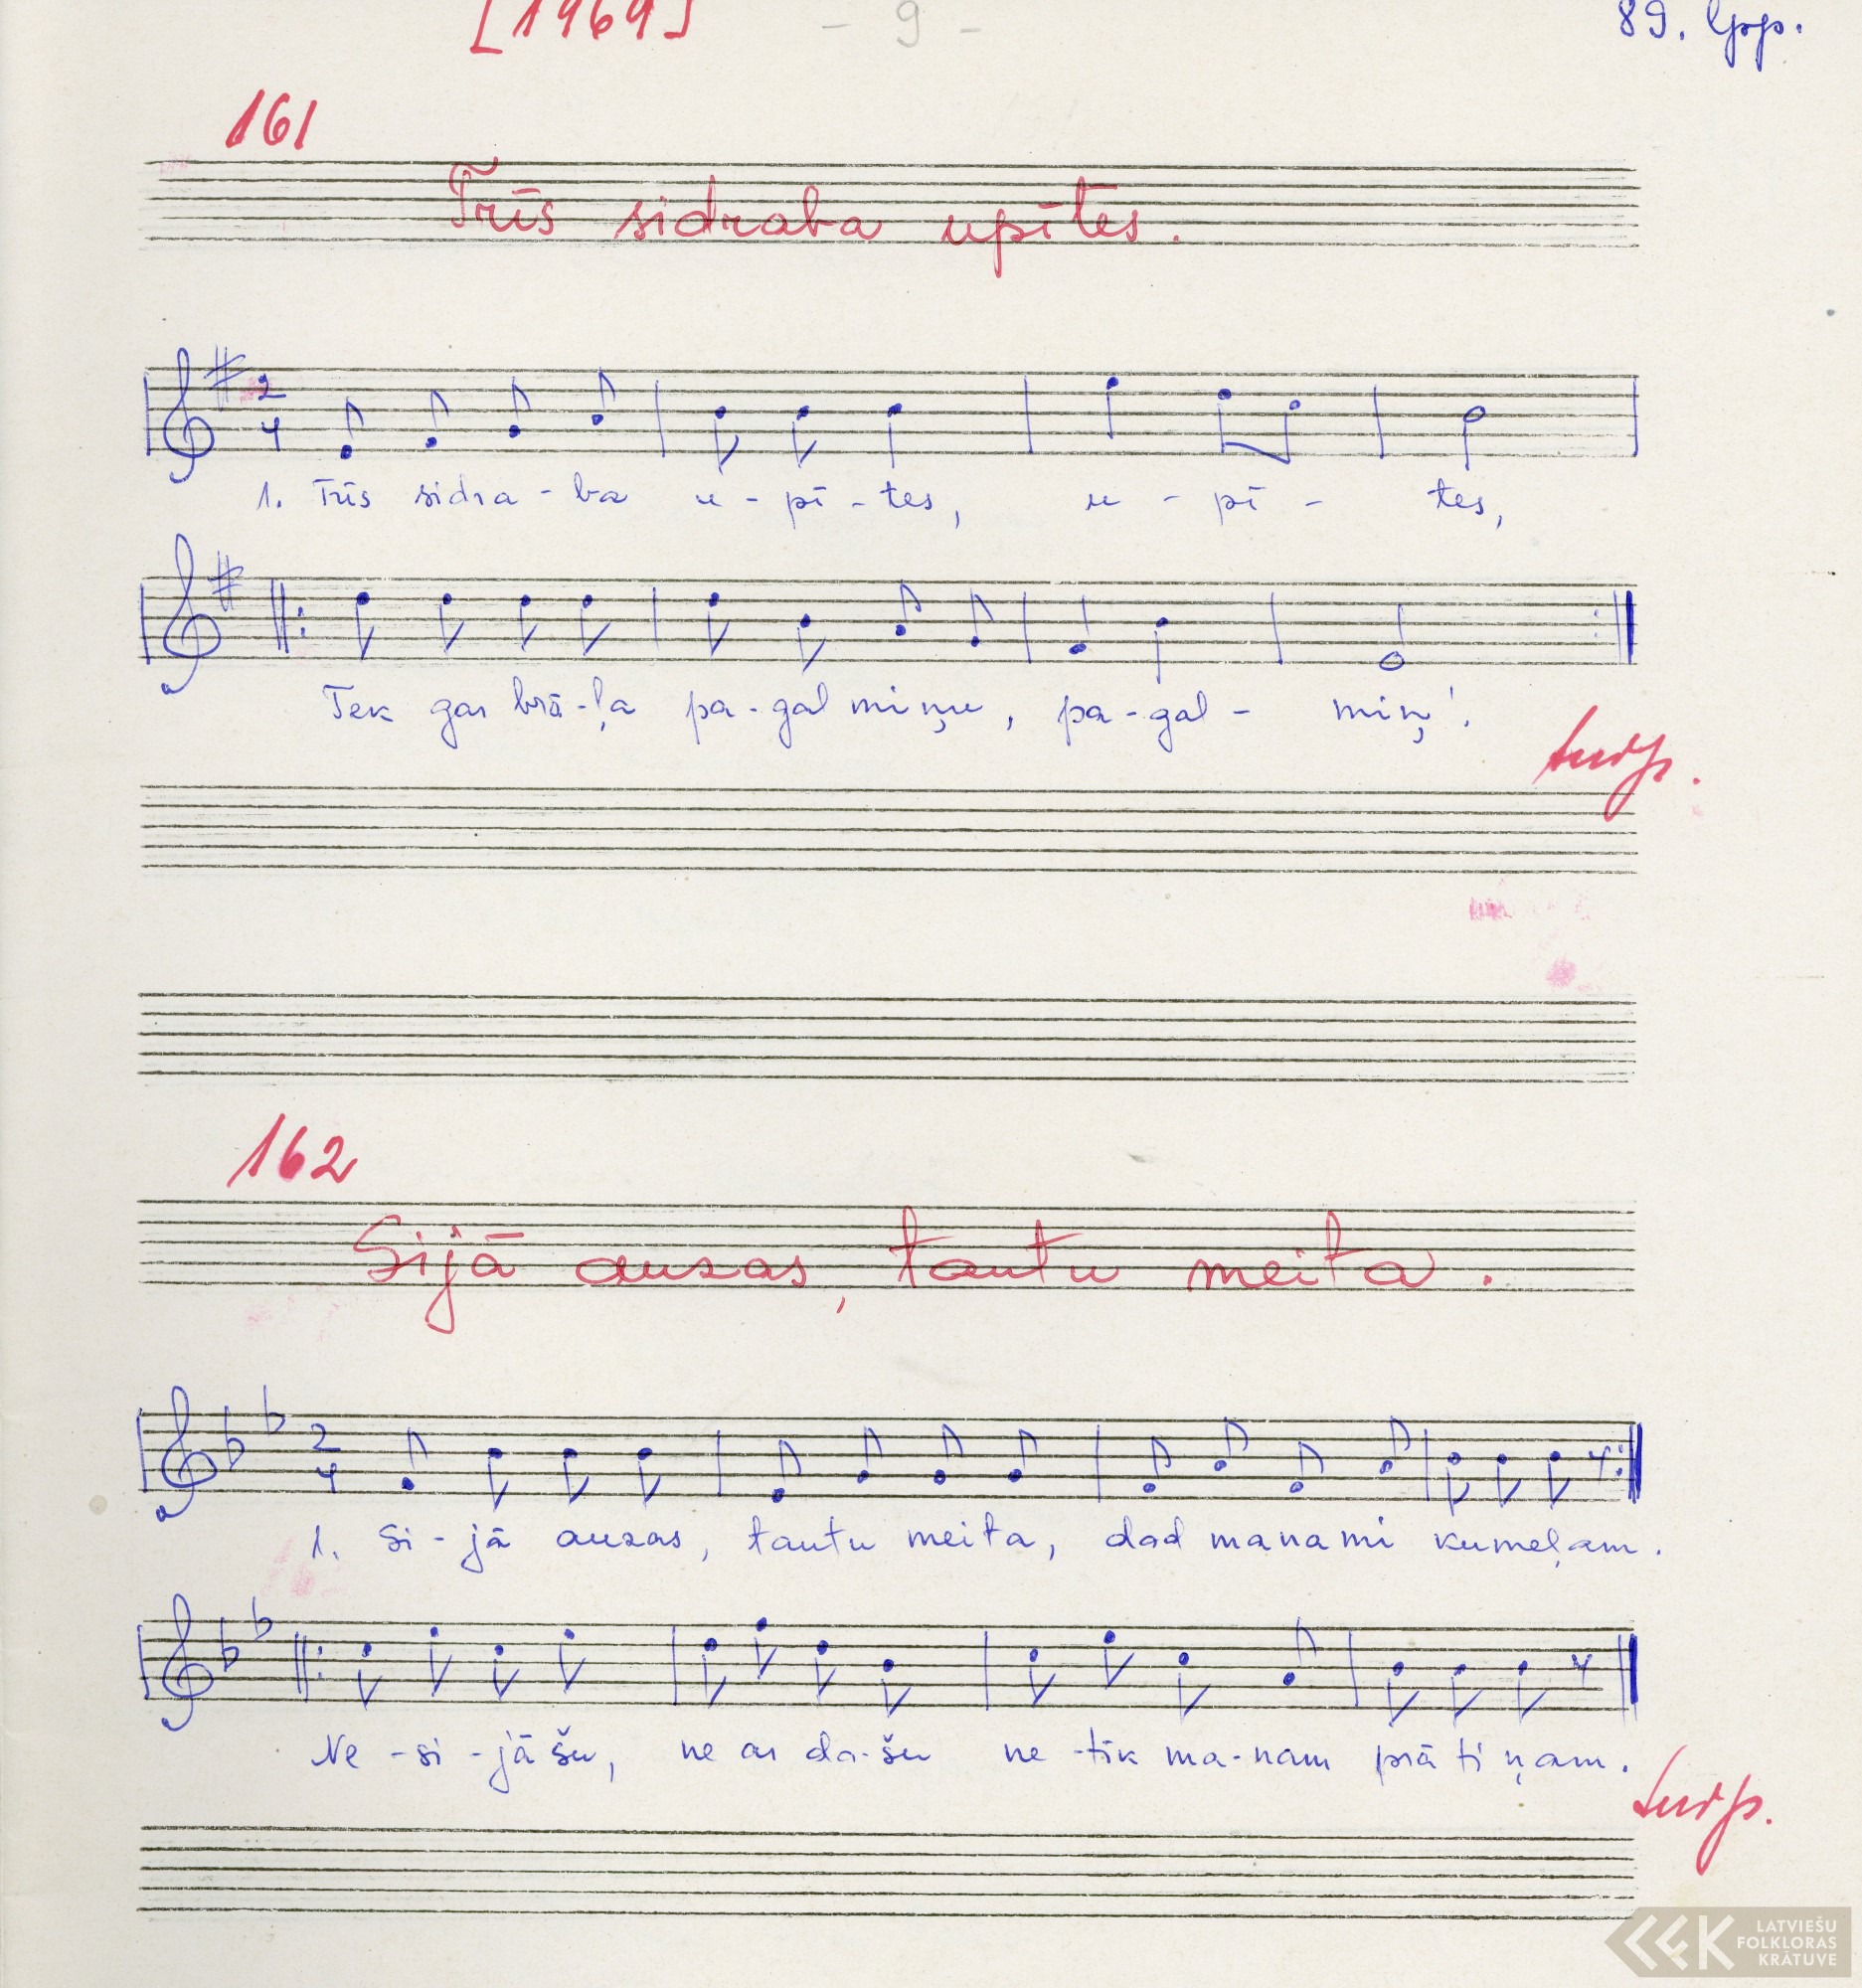 [1969] - 9 - 89. lpp.
161
Trīs sidraba upītes.
2
4
1. Trīs sidra - ba u - pī - tes, u - pī - tes,
Tek gar brā - ļa pa - gal miņu, pa - gal - miņ'.
turp.
162
Sijā auzas, tautu meita.
2
4
1. Si - jā auzas, tautu meita, dod manami kumeļam.
Ne - si - jāšu, ne ar do - šu ne - tik ma - nam prātiņam.
turp.
LATVIEŠU
FOLKLORAS
KRĀTUVE